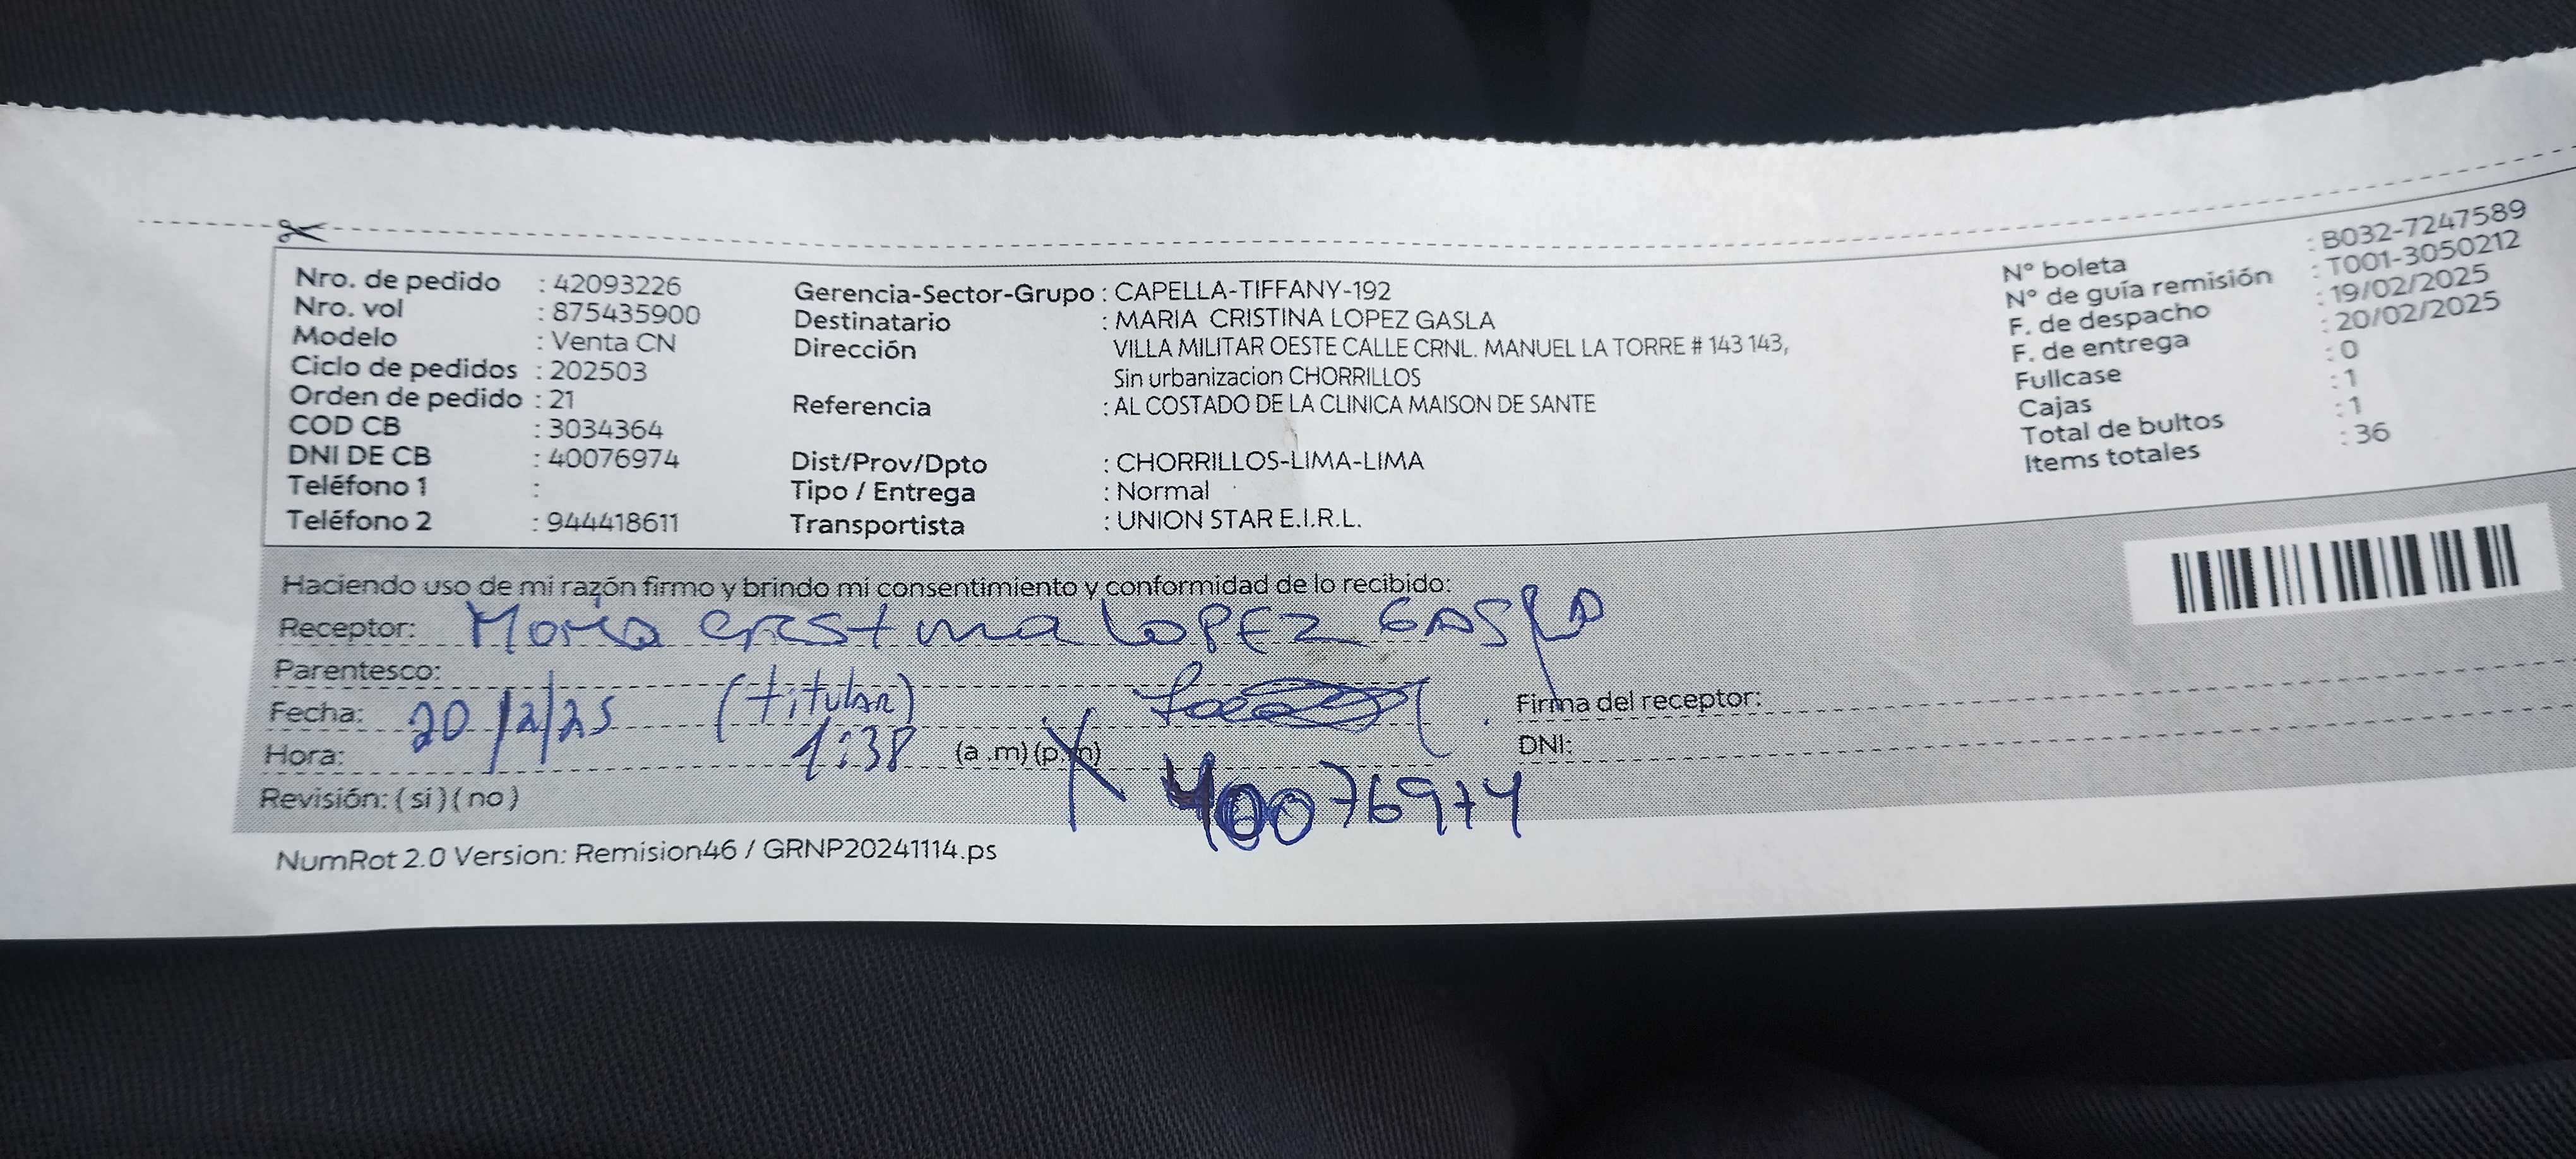 Nro. de pedido : 42093226
Nro. vol : 875435900
Modelo : Venta CN
Ciclo de pedidos : 202503
Orden de pedido : 21
COD CB : 3034364
DNI DE CB : 40076974
Teléfono 1 :
Teléfono 2 : 944418611
Gerencia-Sector-Grupo : CAPELLA-TIFFANY-192
Destinatario : MARIA CRISTINA LOPEZ GASLA
Dirección VILLA MILITAR OESTE CALLE CRNL. MANUEL LA TORRE # 143 143,
Sin urbanizacion CHORRILLOS
Referencia : AL COSTADO DE LA CLINICA MAISON DE SANTE
Dist/Prov/Dpto : CHORRILLOS-LIMA-LIMA
Tipo / Entrega : Normal
Transportista : UNION STAR E.I.R.L.
N° boleta : B032-7247589
N° de guía remisión : T001-3050212
F. de despacho : 19/02/2025
F. de entrega : 20/02/2025
Fullcase : 0
Cajas : 1
Total de bultos : 1
Items totales : 36
Haciendo uso de mi razón firmo y brindo mi consentimiento y conformidad de lo recibido:
Receptor: Maria Cristina LOPEZ GASLA
Parentesco: (titular)
Fecha: 20/2/25
Hora: 1:38 (a .m) (p.m)
Revisión: ( si ) ( no )
Firma del receptor:
DNI:
40076974
NumRot 2.0 Version: Remision46 / GRNP20241114.ps